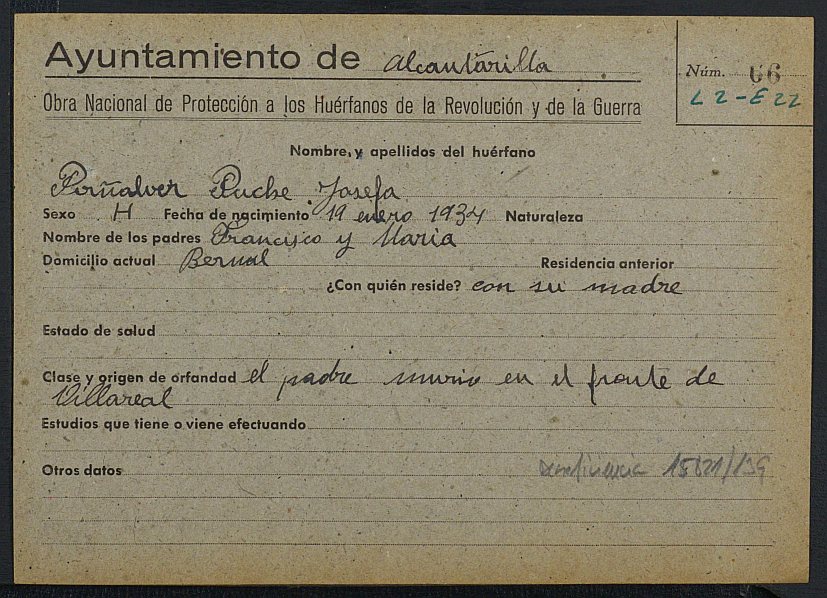 Ayuntamiento de Alcantarilla
Núm. 66
L 2-E 22
Obra Nacional de Protección a los Huérfanos de la Revolución y de la Guerra
Nombre, y apellidos del huérfano
Peñalver Puche Josefa
Sexo H Fecha de nacimiento 19 enero 1934 Naturaleza
Nombre de los padres Francisco y Maria
Domicilio actual Bernal Residencia anterior
¿Con quién reside? con su madre
Estado de salud
Clase y origen de orfandad el padre murio en el frente de
Villareal
Estudios que tiene o viene efectuando
Otros datos